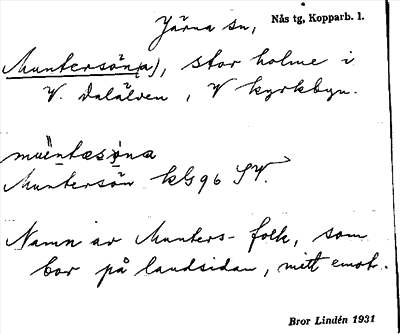 Järna sn, Nås tg, Kopparb. l.
Muntersön(a), stor holme i
V. Dalälven, V kyrkbyn.
Muntersön kbg 96 SV.
Namn av Munters-folk, som
bor på landsidan, mitt emot.
Bror Lindén 1931